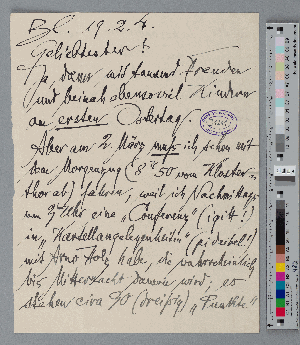 Bl. 19.2.4.
Geliebtester!
Ja, dann mit tausend Freuden
und beinah ebensoviel Kindern
an ersten Ostertag.
Aber am 2. März muss ich schon mit
dem Morgenzug (8 50 vom Kloster
thor ab) fahren, weil ich Nachmittags
um Uhr eine „Conferenz“ (igitt!)
in „Kartellangelegenheiten“ (pi deibel!)
mit Arno Holz habe, die wahrscheinlich
bis Mitternacht dauern wird; es
stehen circa 30 (dreißig) „Punkte“